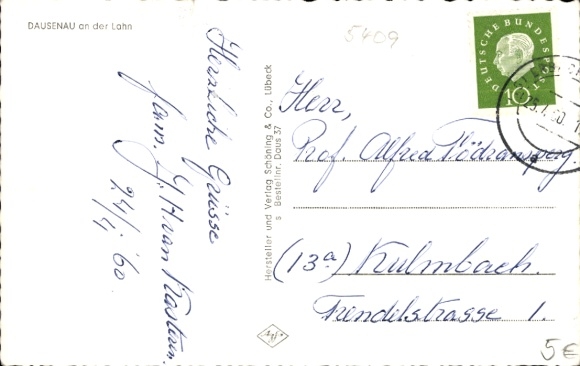 DAUSENAU an der Lahn
5409
Herzliche Grüsse
fam. J. H. van
24/4 '60.
Hersteller und Verlag Schöning & Co., Lübeck
s Bestellnr. Daus 37
DEUTSCHE BUNDESPOST
10
Herr,
Prof. Alfred
(13a) Kulmbach.
Trendelstrasse 1.
5€